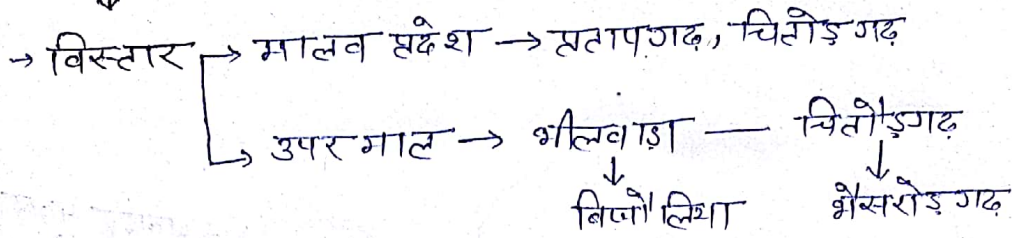 → विस्तार → मालव प्रदेश → प्रतापगढ़, चितोड़गढ़
↳ उपरमाल → भीलवाड़ा — चितौड़गढ़
↓ ↓
बिजौलिया भैसरोड़गढ़